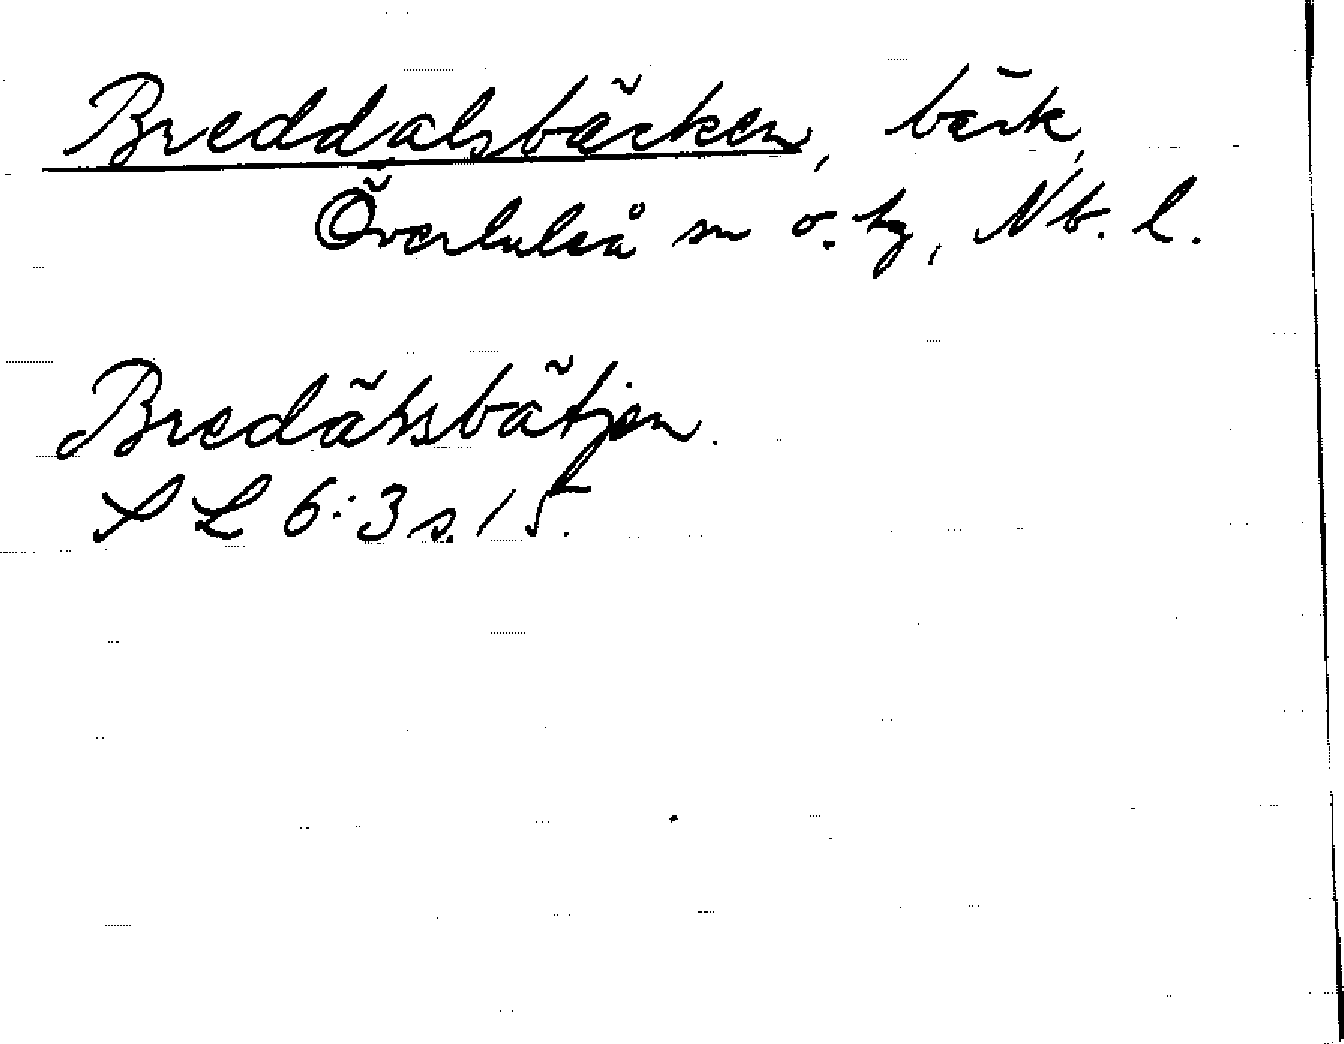 Breddalsbäcken, bäck,
Överluleå sn o. hg, Nb. l.
Bredälsbätjen.
SL 6:3 s. 15.